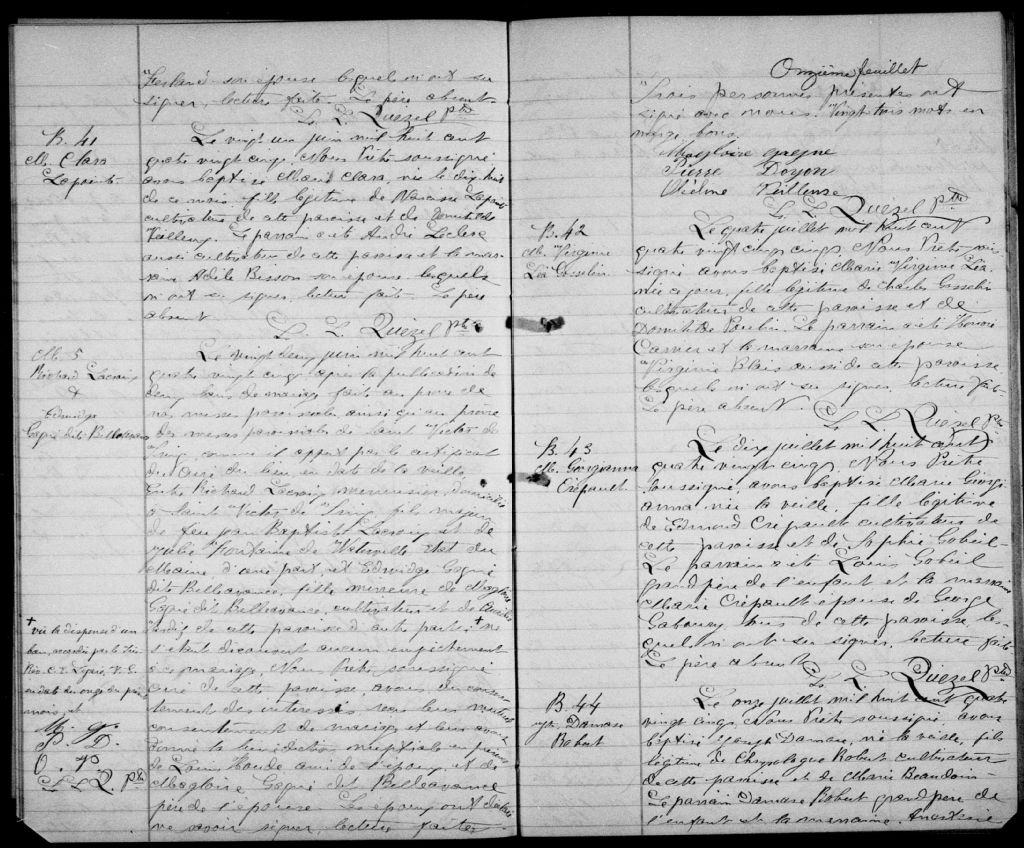 son épouse lesquels n'ont su
signer, lecture faite. Le père absent.
L. L. Quézel Ptre
B. 41
M. Clara
Lapointe
Le vingt un juin mil huit cent
quatre vingt cinq, Nous Prêtre soussigné
avons baptisé Marie Clara, née le dix huit
de ce mois, fille légitime de Narcisse Lapointe
cultivateur de cette paroisse et de
Le parrain a été André Leclerc
aussi cultivateur de cette paroisse et la mar-
raine Adèle Bisson son épouse lesquels
n'ont su signer, lecture faite. Le père
absent
L. L. Quézel Ptre
M. 5
Richard Lacroix
&
Edwidge
Gagné dit Bellavance
Le vingt deux juin mil huit cent
quatre vingt cinq, après la publication de
deux bans de mariage faite au prône de
nos messes paroissiales ainsi qu'au prône
des messes paroissiales de Saint Victor de
Tring comme il appert par le certificat
du curé du lieu en date de la veille
Entre Richard Lacroix menuisier, domicilié
à Saint Victor de Tring, fils majeur
de feu Jean Baptiste Lacroix et de
Julie Fontaine de Waterville Etat du
Maine d'une part, et Edwidge Gagné
dit Bellavance, fille mineure de Magloire
Gagné dit Bellavance, cultivateur et de
de cette paroisse d'autre part; + ne
s'étant découvert aucun empêchement
à ce mariage, Nous Prêtre soussigné
curé de cette paroisse, avons du consen-
tement des intéressés reçu leur mutuel
consentement de mariage et leur avons
donné la bénédiction nuptiale en présence
de Louis ami de l'époux, et de
Magloire Gagné dit Bellavance
père de l'épouse. Les époux ont déclaré
ne savoir signer, lecture faite.
+
vu la dispense d'un
ban, accordée par le
Rév. C. E. V. G.
en date du onze du présent
mois, et
M. G.
P. D.
O. V.
L. L. Q. Ptre
Onzième feuillet
Trois personnes présentes ont
signé avec nous. Vingt trois mots en
marge bons.
Magloire gagne
Pierre Doyon
L. L. Quézel Ptre
B. 42
M. Virginie
Léa Gosselin
Le quatre juillet mil huit cent
quatre vingt cinq cinq, Nous Prêtre sous-
signé avons baptisé Marie Virginie Léa,
née ce jour, fille légitime de Charles Gosselin
cultivateur de cette paroisse et de
Domitilde Poulin. Le parrain a été Honoré
Carrier et la marraine son épouse
Virginie Blais aussi de cette paroisse
lesquels n'ont su signer, lecture faite.
Le père absent.
L. L. Quézel Ptre
B. 43
M. Georgianna
Crépault
Le dix juillet mil huit cent
quatre vingt cinq, Nous Prêtre
soussigné, avons baptisé Marie Georgi
anna née la veille, fille légitime
de Edmond Crépault cultivateur de
cette paroisse et de Sophie Gobeil.
Le parrain a été Louis Gobeil
grand père de l'enfant et la marraine
Marie Crépault épouse de George
Gaboury tous de cette paroisse, les-
quels n'ont su signer, lecture faite
Le père absent
L. L. Quézel Ptre
B. 44
Jph Damase
Robert
Le onze juillet mil huit cent quatre
vingt cinq Nous Prêtre soussigné avons
baptisé Joseph Damase, né la veille, fils
légitime de Chrysologue Robert cultivateur
de cette paroisse et de Marie Beaudoin.
Le parrain Damase Robert grand père de
l'enfant et la marraine Anastasie